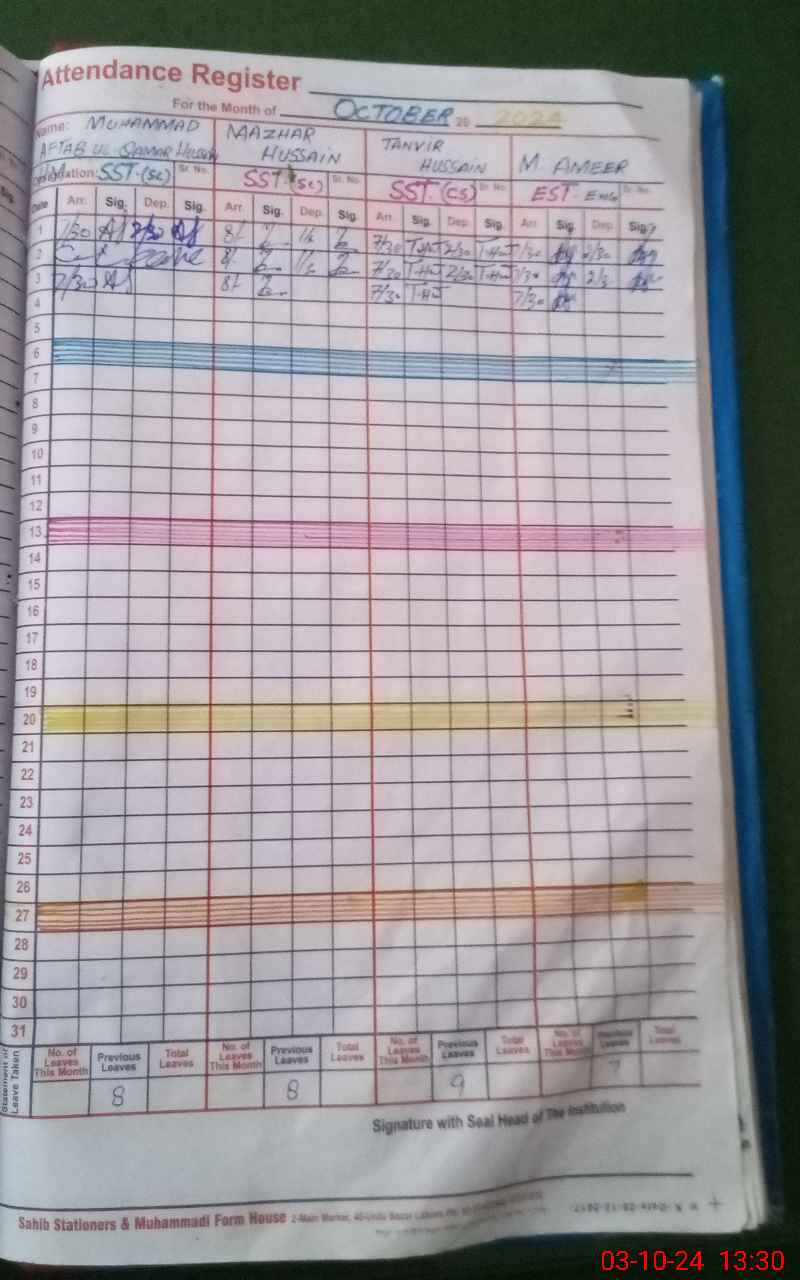 Attendance Register
For the Month of OCTOBER 20 2024
Name: MUHAMMAD AFTAB UL QAMAR HUSSAIN
MAZHAR HUSSAIN
TANVIR HUSSAIN
M. AMEER
Designation: SST.(SC) Sr. No. SST.(SC) Sr. No. SST.(CS) Sr. No. EST-ENG Sr. No.
Date Arr. Sig. Dep. Sig. Arr. Sig. Dep. Sig. Arr. Sig. Dep. Sig. Arr. Sig. Dep. Sig.
1 7/30 2/30 8/ 7/30 T.HU 2/30 T.HU 7/30 2/30
2 8/ 7/30 T.HU 2/30 T.HU 7/30 2/3
3 7/30 8/ 7/30 T.HU 7/30
4
5
6
7
8
9
10
11
12
13
14
15
16
17
18
19
20
21
22
23
24
25
26
27
28
29
30
31
Statement of Leave Taken
No. of Leaves This Month Previous Leaves Total Leaves No. of Leaves This Month Previous Leaves Total Leaves No. of Leaves This Month Previous Leaves Total Leaves No. of Leaves This Month Previous Leaves Total Leaves
8 8 9 7
Signature with Seal Head of The Institution
Sahib Stationers & Muhammadi Form House 2-Main Market, 40-Urdu Bazar Lahore.
03-10-24 13:30